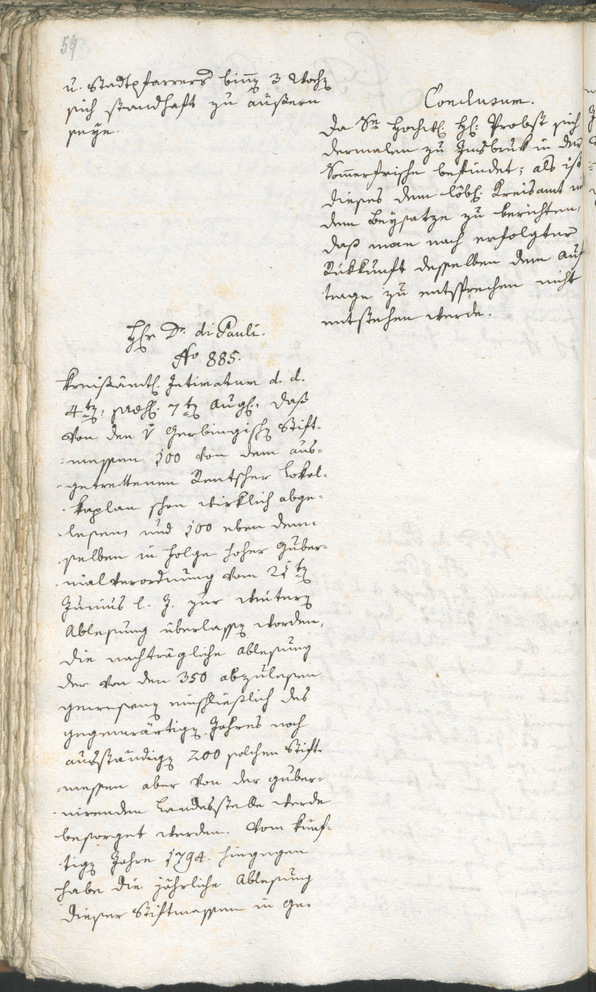 59
u. Stadtpfarrers binnen 3 Wochen
sich standhaft zu äußern
seye.
Conclusum.
Da Se Hochw. H: Probst sich
dermalen zu Innsbruk in der
Sommerfrische befindet; als ist
dieses dem löbl. Kreisamt mit
dem Beysatze zu berichten,
daß man nach erfolgter
Rükkunft desselben dem Auf-
trage zu entsprechen nicht
entstehen werde.
Hr Dr. di Pauli.
No 885.
Kreisämtl. Intimatum d. d.
4ten, 7ten Aug., daß
von den v Gerbingischen Stift-
messen 100 von dem aus-
getrettenen Rentscher Lokal-
kaplan schon wirklich abge-
lesen, und 100 eben dem-
selben in Folge hoher Guber-
nialverordnung vom 21ten
Junius l. J. zur weitern
Ablesung überlassen worden,
die nachträgliche Ablesung
der von den 350 abzulesen
gewesenen einschließlich des
gegenwärtigen Jahres noch
ausständigen 200 solchen Stift-
messen aber von der guber-
nirenden Landesstelle werde
besorget werden. Vom künf-
tigen Jahre 1794. hingegen
habe die jährliche Ablesung
dieser Stiftmessen in Ge-